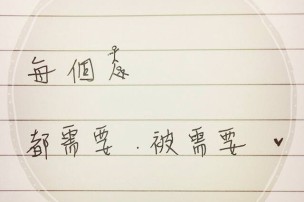 每個
都需要.被需要 ♥